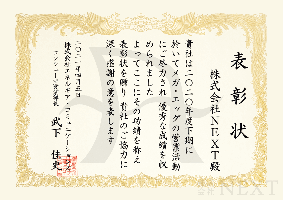 表彰状
株式会社NEXT殿
貴社は二〇二〇年度下期に
於いてメガ・エッグの営業活動
にご尽力され優秀な成績を収
められました
よってここにその功績を称え
表彰状を贈り貴社のご協力に
深く感謝の意を表します
二〇二一年四月五日
株式会社エネルギア・コミュニケーションズ
武下 佳史
NEXT